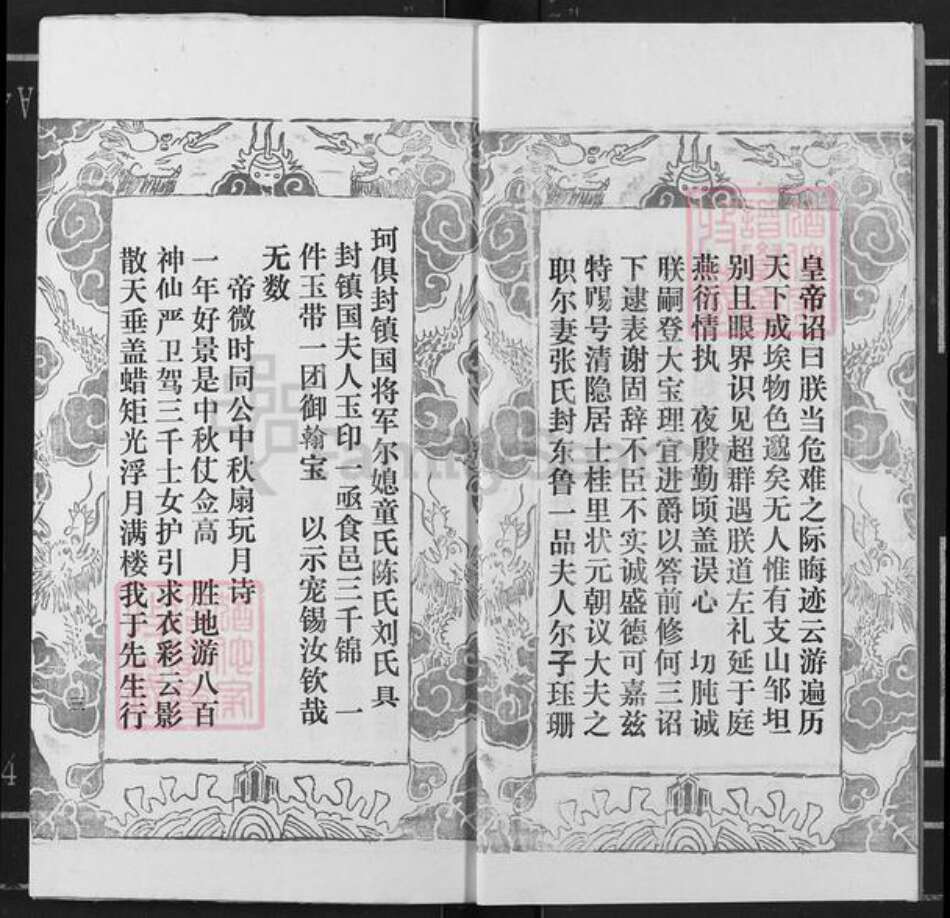 皇帝诏曰朕当危难之际晦迹云游遍历
天下成埃物色邈矣无人惟有支山邹坦
别且眼界识见超群遇朕道左礼延于庭
燕衍情执 夜殷勤顷盖误心 切肫诚
朕嗣登大宝理宜进爵以答前修何三诏
下逮表谢固辞不臣不实诚盛德可嘉兹
特赐号清隐居士桂里状元朝议大夫之
职尔妻张氏封东鲁一品夫人尔子珏珊
珂俱封镇国将军尔媳童氏陈氏刘氏具
封镇国夫人玉印一亟食邑三千锦 一
件玉带一团御翰宝 以示宠锡汝钦哉
无数
帝微时同公中秋扇玩月诗
一年好景是中秋仗佥高 胜地游八百
神仙严卫驾三千士女护引求衣彩云影
散天垂盖蜡矩光浮月满楼我于先生行
三